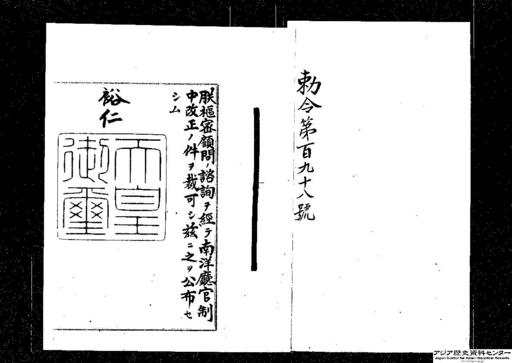 勅令第百九十八號
朕樞密顧問ノ諮詢ヲ經テ南洋廳官制
中改正ノ件ヲ裁可シ茲ニ之ヲ公布セ
シム
裕仁
天皇
御璽
アジア歴史資料センター
Japan Center for Asian Historical Records